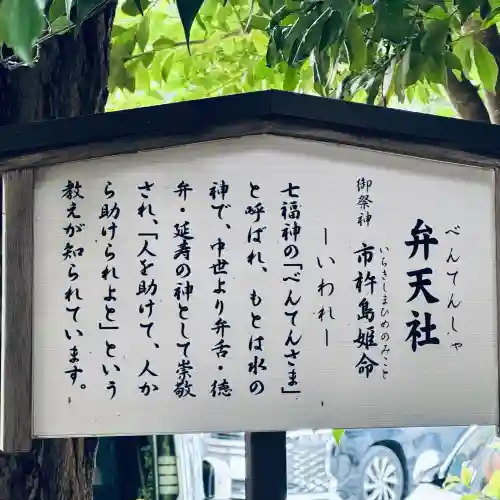 べんてんしゃ
弁天社
いちきしまひめのみこと
御祭神 市杵島姫命
ーいわれー
七福神の「べんてんさま」
と呼ばれ、もとは水の
神で、中世より弁舌・徳
弁・延寿の神として崇敬
され、「人を助けて、人か
ら助けられよと」という
教えが知られています。